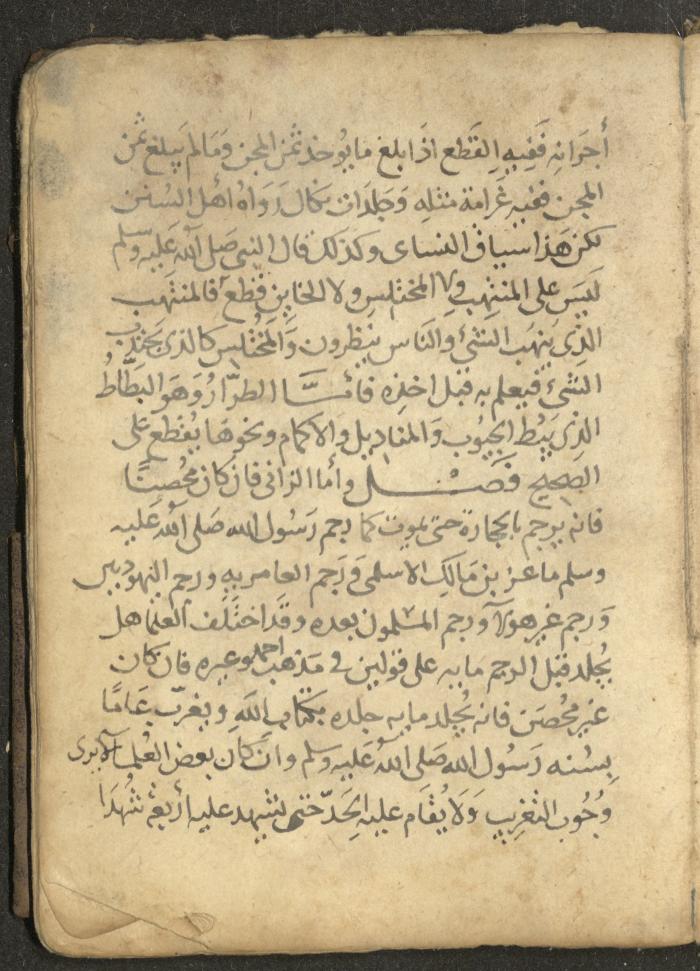 أجرانه ففيه القطع اذا بلغ ما يؤخذ ثمن المجن وما لم يبلغ ثمن
المجن ففيه غرامة مثله وجلدات نكال رواه اهل السنن
لكن هذا سياق النساى وكذلك قال النبي صلى الله عليه وسلم
ليس على المنتهب ولا المختلس ولا الخاين قطع فالمنتهب
الذي ينهب الشئ والناس ينظرون والمختلس كالذي يجتذب
الشئ فيعلم به قبل اخذه فامّا الطرّار وهو البطّاط
الذي يبُط الجيوب والمناديل والاكمام ونحوها يُقطع على
الصحيح فصل وأما الزانى فان كان مُحصِنًا
فانه يرجم بالحجارة حتى يموت كما رجم رسول الله صلى الله عليه
وسلم ماعز بن مالك الاسلمى ورجم العامريه ورجم اليهوديين
ورجم غير هولا ورجم المسلمون بعده وقد اختلف العلما هل
يُجلد قبل الرجم مايه على قولين في مذهب احمد وغيره فان كان
غير مُحصَن فانه يُجلد مايه جلده بكتاب الله ويغرّب عامًا
بسُنه رسُول الله صلى الله عليه وسلم وان كان بعض العُلما لا يرى
وُجُوب التغريب ولا يُقام عليه الحدّ حتى يشهد عليه أربعة شُهدَا